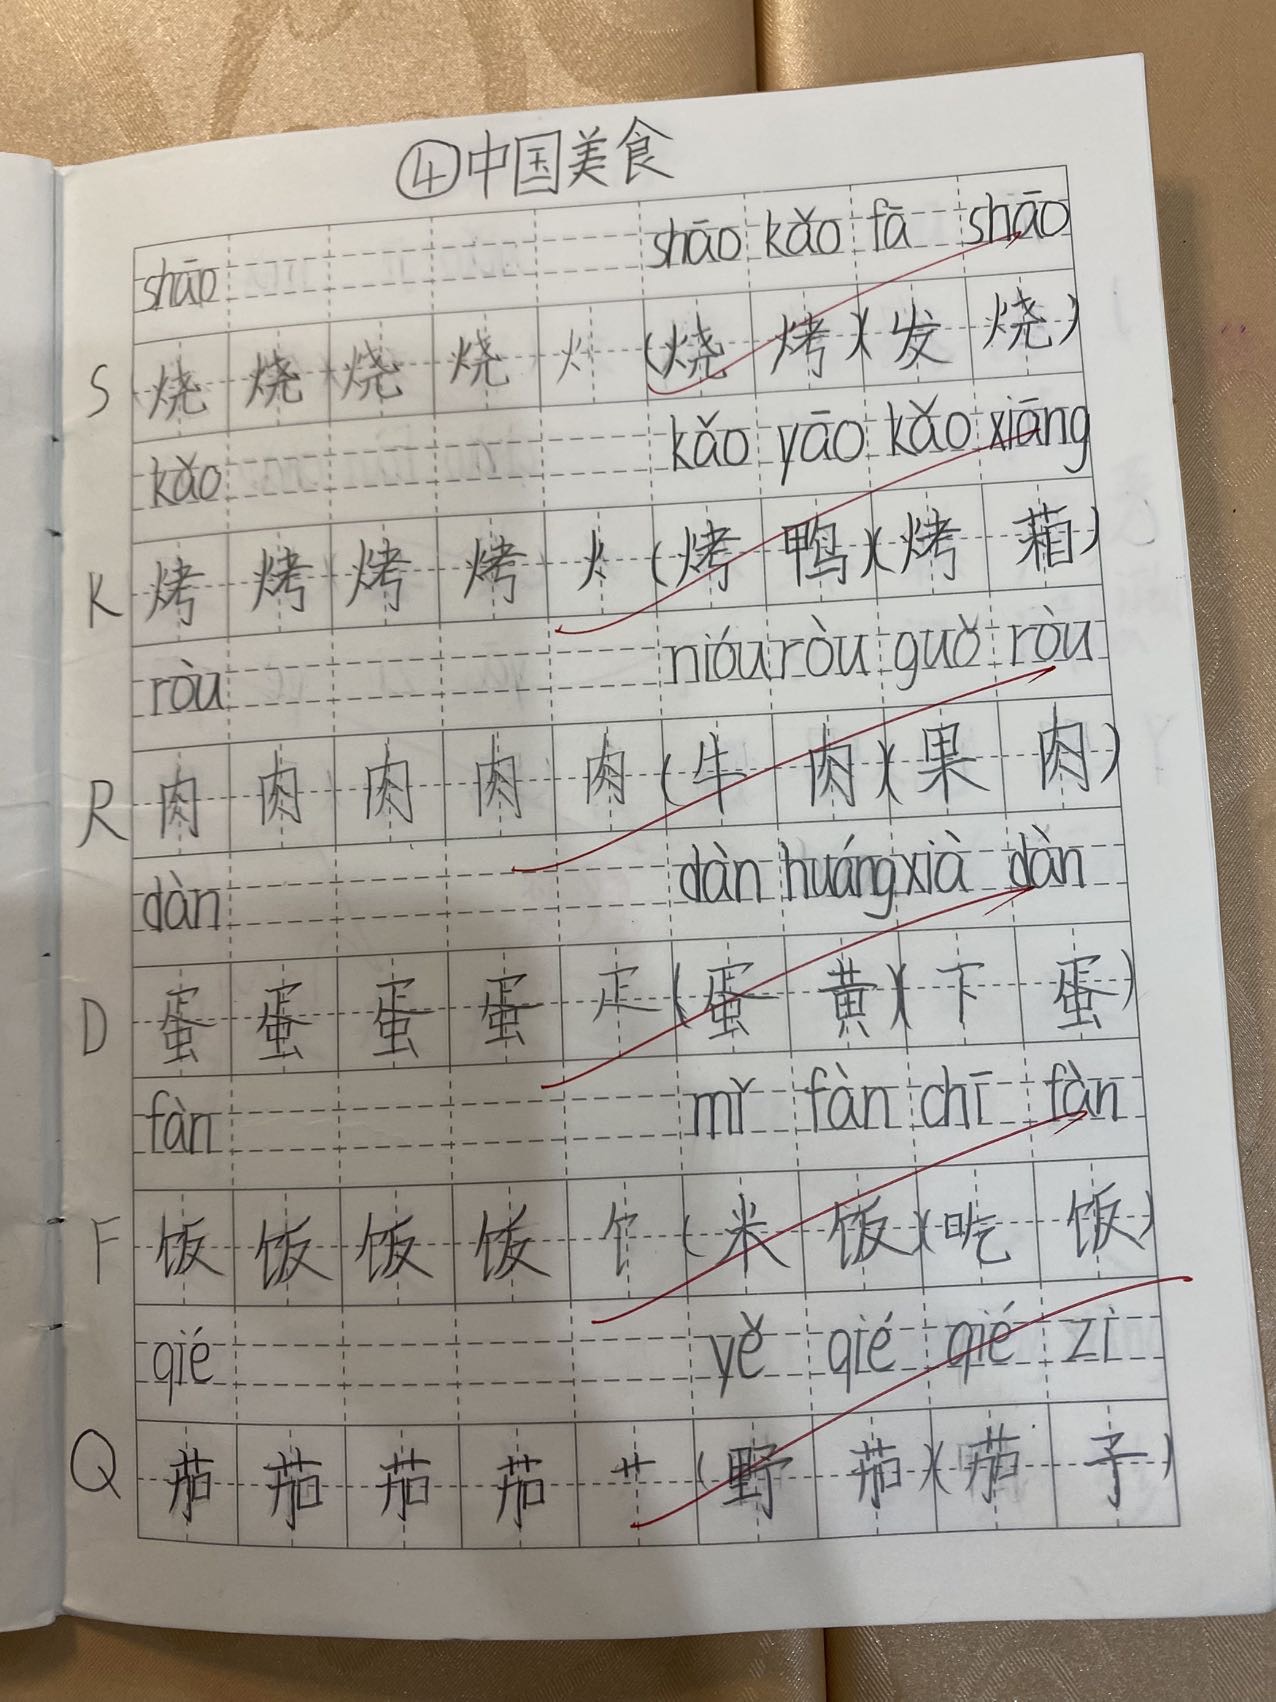 ④中国美食
shāo shāo kǎo fā shāo
S 烧 烧 烧 烧 火 (烧 烤)(发 烧)
kǎo kǎo yāo kǎo xiāng
K 烤 烤 烤 烤 火 (烤 鸭)(烤 葙)
ròu nióu ròu guǒ ròu
R 肉 肉 肉 肉 肉 (牛 肉)(果 肉)
dàn dàn huáng xià dàn
D 蛋 蛋 蛋 蛋 疋 (蛋 黄)(下 蛋)
fàn mǐ fàn chī fàn
F 饭 饭 饭 饭 饣 (米 饭)(吃 饭)
qié yě qié qié zi
Q 茄 茄 茄 茄 艹 (野 茄)(茄 子)